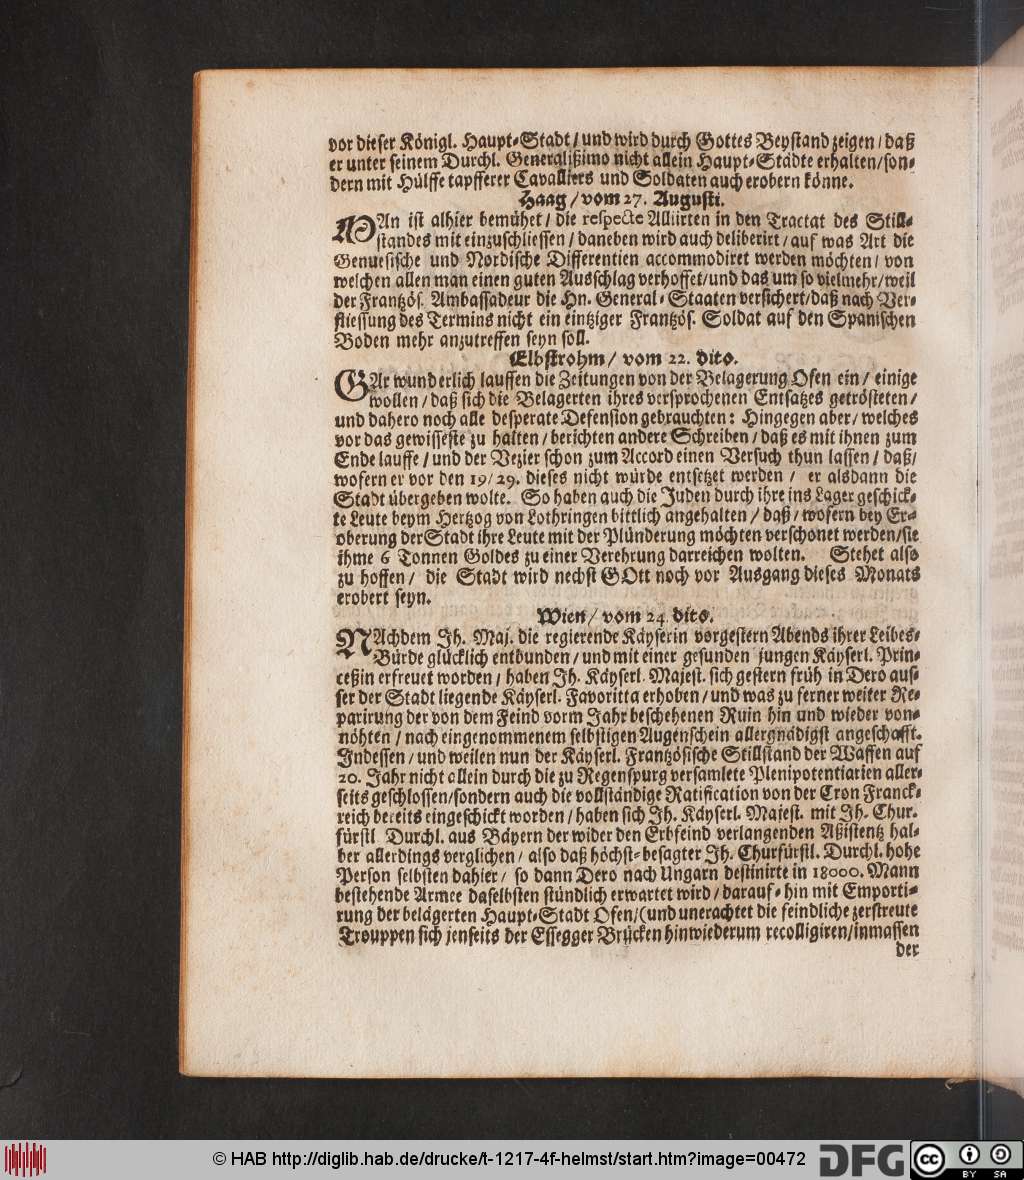 vor dieser Königl. Haupt-Stadt / und wird durch Gottes Beystand zeigen / daß
er unter seinem Durchl. Generalißimo nicht allein Haupt-Städte erhalten / son-
dern mit Hülffe tapfferer Cavalliers und Soldaten auch erobern könne.
Haag / vom 27. Augusti.
MAn ist alhier bemühet / die respecte Alliirten in den Tractat des Still-
standes mit einzuschliessen / daneben wird auch deliberirt / auf was Art die
Genuesische und Nordische Differentien accommodiret werden möchten / von
welchen allen man einen guten Ausschlag verhoffet / und das um so vielmehr / weil
der Frantzös. Ambassadeur die Hn. General-Staaten versichert / daß nach Ver-
fliessung des Termins nicht ein eintziger Frantzös. Soldat auf den Spanischen
Boden mehr anzutreffen seyn soll.
Elbstrohm / vom 22. dito.
GAr wunderlich lauffen die Zeitungen von der Belagerung Ofen ein / einige
wollen / daß sich die Belagerten ihres versprochenen Entsatzes getrösteten /
und dahero noch alle desperate Defension gebrauchten: Hingegen aber / welches
vor das gewisseste zu halten / berichten andere Schreiben / daß es mit ihnen zum
Ende lauffe / und der Vezier schon zum Accord einen Versuch thun lassen / daß /
wofern er vor den 19/29. dieses nicht würde entsetzet werden / er alsdann die
Stadt übergeben wolte. So haben auch die Juden durch ihre ins Lager geschick-
te Leute beym Hertzog von Lothringen bittlich angehalten / daß / wofern bey Er-
oberung der Stadt ihre Leute mit der Plünderung möchten verschonet werden / sie
ihme 6 Tonnen Goldes zu einer Verehrung darreichen wolten. Stehet also
zu hoffen / die Stadt wird nechst GOtt noch vor Ausgang dieses Monats
erobert seyn.
Wien / vom 24. dito.
NAchdem Ih. Maj. die regierende Käyserin vorgestern Abends ihrer Leibes-
Bürde glücklich entbunden / und mit einer gesunden jungen Käyserl. Prin-
ceßin erfreuet worden / haben Ih. Käyserl. Majest. sich gestern früh in Dero aus-
ser der Stadt liegende Käyserl. Favoritta erhoben / und was zu ferner weiter Re-
parirung der von dem Feind vorm Jahr beschehenen Ruin hin und wieder von-
nöhten / nach eingenommenem selbstigen Augenschein allergnädigst angeschafft.
Indessen / und weilen nun der Käyserl. Frantzösische Stillstand der Waffen auf
20. Jahr nicht allein durch die zu Regenspurg versamlete Plenipotentiarien aller-
seits geschlossen / sondern auch die vollständige Ratification von der Cron Franck-
reich bereits eingeschickt worden / haben sich Ih. Käyserl. Majest. mit Ih. Chur-
fürstl Durchl. aus Bäyern der wider den Erbfeind verlangenden Aßistentz hal-
ber allerdings verglichen / also daß höchst-besagter Ih. Churfürstl. Durchl. hohe
Person selbsten dahier / so dann Dero nach Ungarn destinirte in 18000. Mann
bestehende Armee daselbsten stündlich erwartet wird / darauf-hin mit Emporti-
rung der belägerten Haupt-Stadt Ofen / (und unerachtet die feindliche zerstreute
Trouppen sich jenseits der Essegger Brücken hinwiederum recolligiren / inmassen
der
© HAB http://diglib.hab.de/drucke/t-1217-4f-helmst/start.htm?image=00472
DFG
cc
BY SA